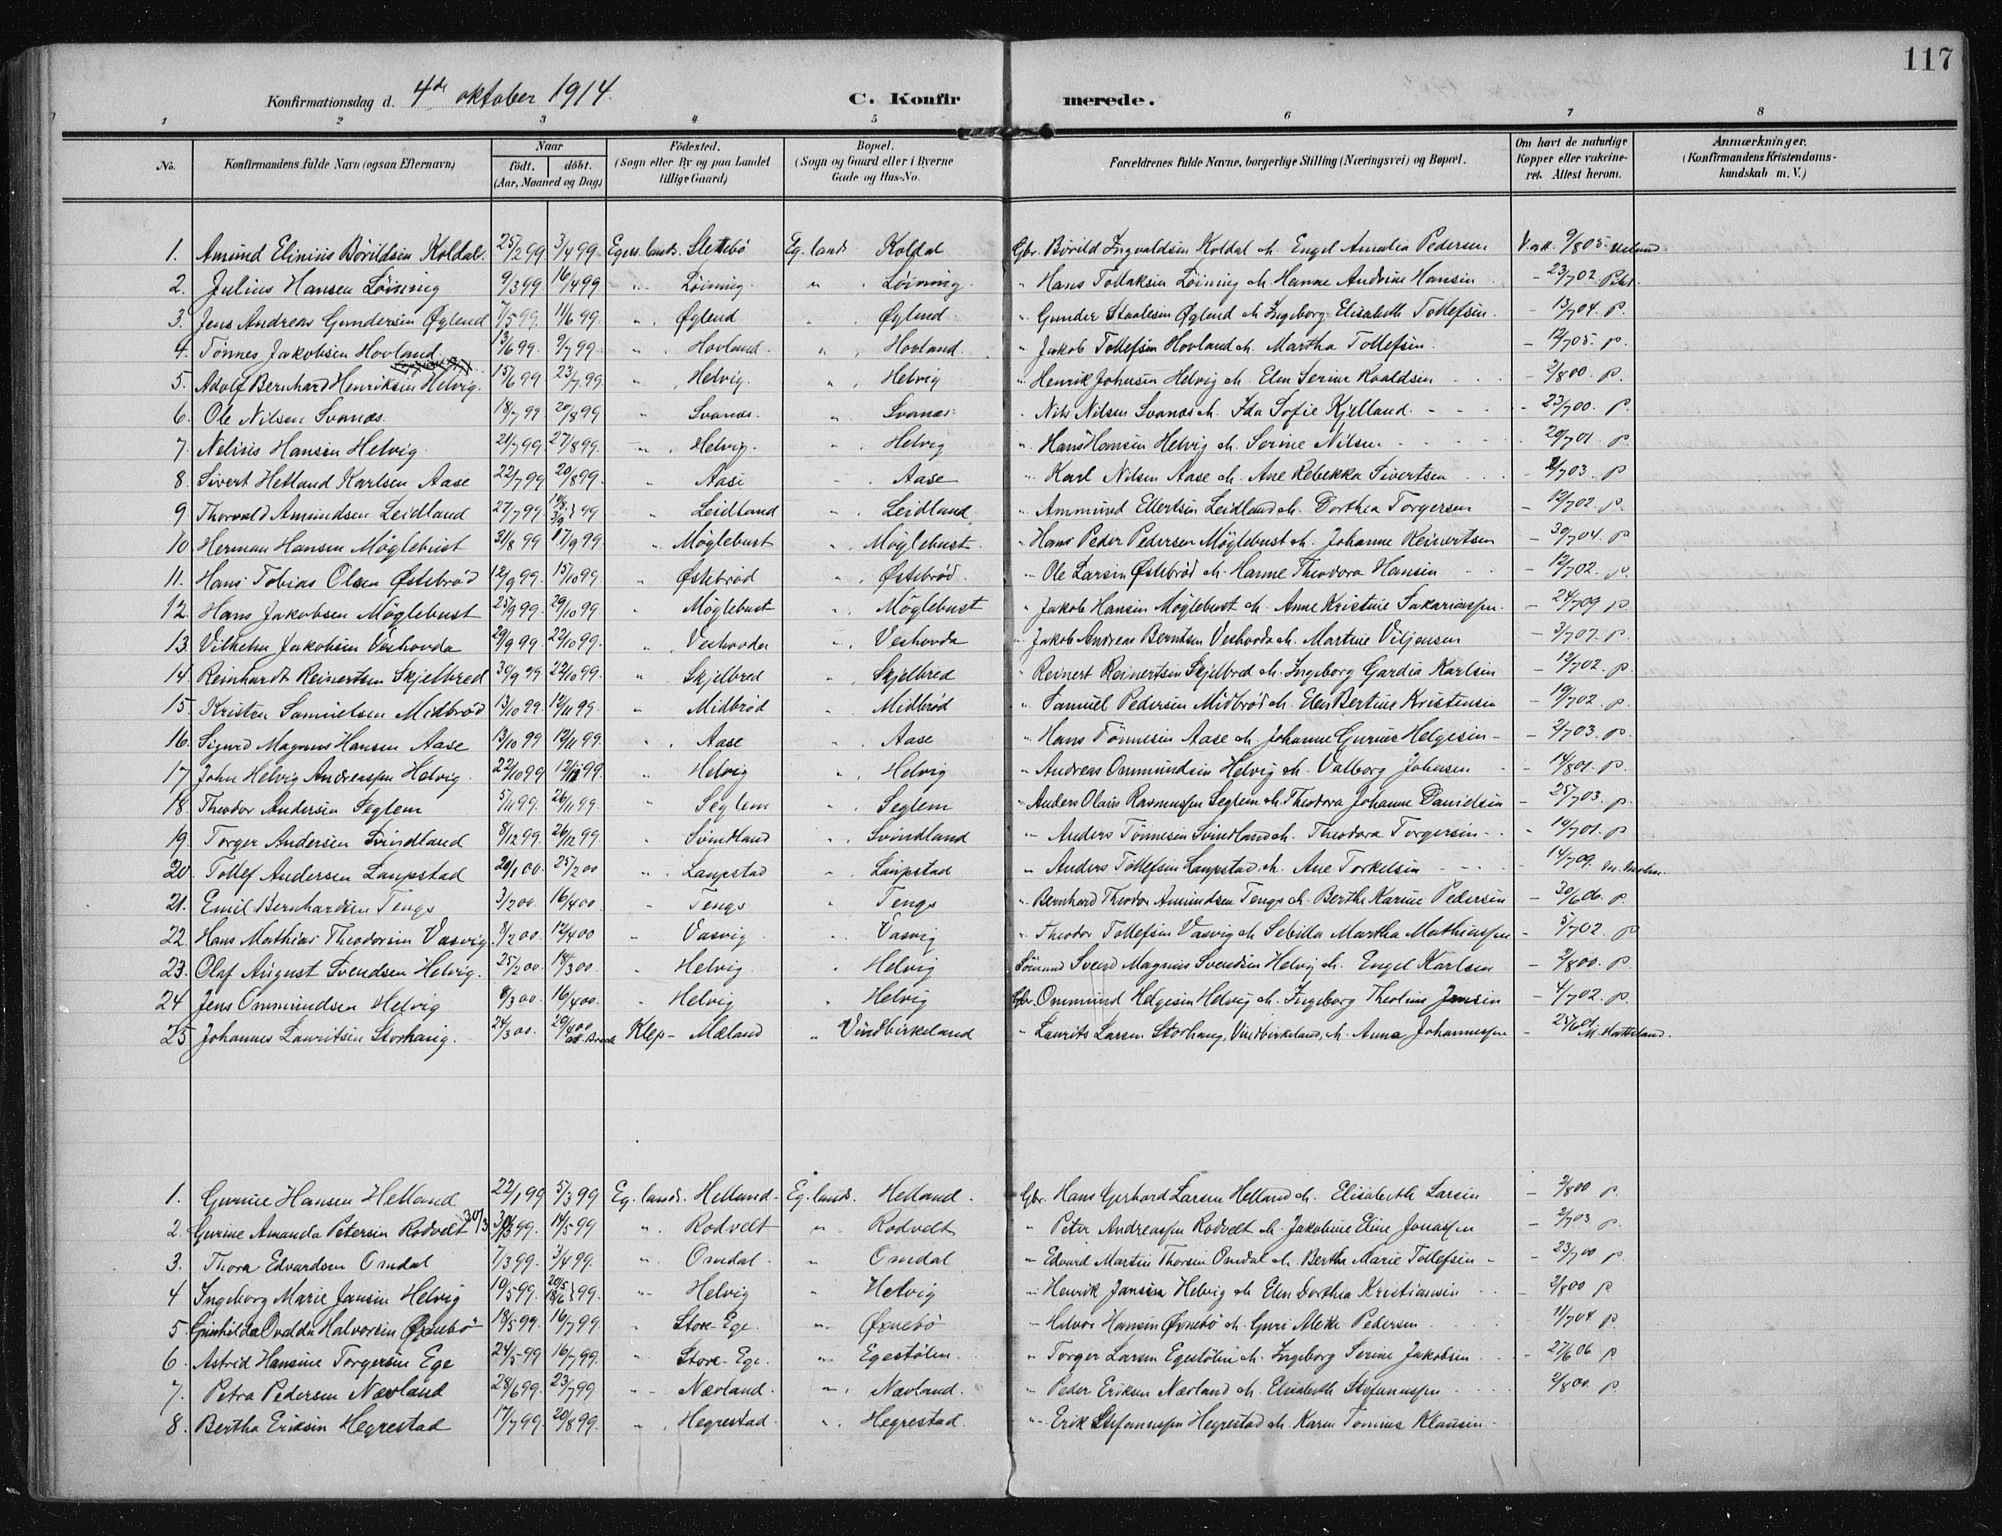 117
Konfirmationsdag d. 4de oktober 1914. C. Konfirmerede.
1 2 3 4 5 6 7 8
No. Konfirmandens fulde Navn (ogsaa Efternavn) Naar födt. döbt. (Aar, Maaned og Dag) Födested. (Sogn eller By og paa Landet tillige Gaard) Bopæl. (Sogn og Gaard eller i Byerne Gade og Hus-No. Forældrenes fulde Navne, borgerlige Stilling (Næringsvei) og Bopæl. Om havt de naturlige Kopper eller vakcineret. Attest herom. Anmærkninger. (Konfirmandens Kristendomskundskab m. V.)
1. Amund Elinius Börildsen Koldal. 25/2 99 3/4 99 Egers. lands. Slettebö Eg. lands. Koldal Gbr. Börild Ingvaldsen Koldal og h. Engel Amalia Pedersen V. att. 9/8 05
2. Julius Hansen Löining 9/3 99 16/4 99 " Löining. " Löining. " Hans Tollaksen Löining o h. Hanne Andrine Hansen - 23/7 02
3. Jens Andreas Gundersen Øglend 7/5 99. 11/6 99. " Øglend " Øglend. " Gunder Staalesen Øglend o h. Ingeborg Elisabeth Tollefsen. - 13/7 04. p.
4. Tönnes Jakobsen Hovland 13/6 99. 9/7 99. " Hovland. " Hovland. " Jakob Tollefsen Hovland o h. Martha Tollefsen. - 12/7 05. p.
5. Adolf Bernhard Henriksen Helvig. 15/6 99 23/7 99. " Helvig. " Helvig " Henrik Johnsen Helvig o h. Elen Serine Roaldsen - 2/8 00. p.
6. Ole Nilsen Svanæs. 18/7 99 20/8 99 " Svanæs. " Svanæs. " Nils Nilsen Svanæs o h. Ida Sofie Kjelland. - 23/7 00. p.
7. Nelius Hansen Helvig. 21/7 99 27/8 99. " Helvig. " Helvig " Hans Hansen Helvig o h. Serine Nilsen - 20/7 01. p
8. Sivert Hetland Karlsen Aase 22/7 99 20/8 99 " Aase " Aase " Karl Nilsen Aase o h. Ane Rebekka Sivertsen - 2/7 03. p
9 Thorvald Amundsen Leidland 27/7 99 3/9 99 " Leidland " Leidland. " Ammund Ellertsen Leidland o h. Dorthea Torgersen - 12/7 02. p
10. Herman Hansen Möglebust 31/8 99 17/9 99. " Möglebust " Möglebust. " Hans Peder Pedersen Möglebust o h. Johanne Reinertsen - 30/7 04. p
11. Hans Tobias Olsen Østebröd 12/9 99. 15/10 99. " Østebröd " Østebröd. " Ole Larsen Østebröd o h. Hanne Theodora Hansen - 12/7 02. p.
12. Hans Jakobsen Möglebust 25/9 99. 29/10 99 " Möglebust " Möglebust " Jakob Hansen Möglebust o h. Anne Kristine Sakariassen. - 24/7 09 p.
13. Vilhelm Jakobsen Veshovda 29/9 99. 22/10 99. " Veshovda " Veshovda " Jakob Andreas Berntsen Veshovda o h. Martine Viljensen - 3/7 07. p
14. Reinhardt Reinertsen Skjelbred 30/9 99 22/10 99. " Skjelbred " Skjelbred " Reinert Reinertsen Skjelbred o h. Ingeborg Gardia Karlsen - 12/7 02. p.
15. Kristen Samuelsen Midbröd 13/10 99. 12/11 99. " Midbröd " Midbröd " Samuel Pedersen Midbröd o h. Elen Bertine Kristensen - 19/7 02. p
16. Sigurd Magnus Hansen Aase 13/10 99 12/11 99. " Aase " Aase " Hans Tönnesen Aase o h. Johanne Gurine Helgesen - 2/7 03. p
17. John Helvig Andreassen Helvig. 22/10 99 12/11 99. " Helvig " Helvig " Andreas Ommundsen Helvig o h. Valborg Johnsen - 14/8 01. p.
18. Theodor Andersen Seglem 5/11 99. 26/11 99. " Seglem " Seglem " Anders Olaus Rasmussen Seglem o h. Theodora Johanne Danielsen - 25/7 03. p
19. Torger Andersen Svindland 8/12 99. 26/12 99. " Svindland " Svindland " Anders Tönnesen Svindland o h. Theodora Torgersen - 14/7 01. p
20. Tollef Andersen Laupstad 20/1 00. 25/2 00 " Laupstad " Laupstad " Anders Tollefsen Laupstad o h. Ane Torkelsen - 14/7 09.
21. Emil Bernhardsen Tengs 3/2 00. 16/4 00 " Tengs " Tengs " Bernhard Theodor Amundsen Tengs o h. Berthe Karine Pedersen - 30/6 06. p
22. Hans Mathias Theodorsen Vasvig 8/2 00. 12/4 00 " Vasvig " Vasvig " Theodor Tollefsen Vasvig o h. Sebilla Martha Mathiassen - 5/7 02. p
23. Olaf August Svendsen Helvig. 25/2 00. 18/3 00. " Helvig " Helvig Sömand Svend Magnus Svendsen Helvig o h. Engel Karlsen - 2/8 00. p.
24 Jens Ommundsen Helvig 8/3 00. 16/4 00. " Helvig " Helvig Gbr. Ommund Helgesen Helvig o h. Ingeborg Theoline Jensen - 4/7 02. p.
25. Johannes Lauritsen Storhaug. 24/3 00. 29/4 00 Klep - Mæland " Vindbirkeland " Laurits Larsen Storhaug, Vindbirkeland, o h. Anna Johannessen - 25/6 01.
1. Gurine Hansen Hetland 22/1 99 5/3 99 Eg. lands. Hetland. Eg. lands. Hetland. Gbr. Hans Gerhard Larsen Hetland o h. Elisabeth Larsen - 2/8 00 p.
2. Gurine Amanda Petersen Rodvelt 30/3 99. 14/5 99 " Rodvelt " Rodvelt " Peter Andreassen Rodvelt o h. Jakobine Eline Jonassen - 2/7 03 p.
3. Thora Edvardsen Omdal 7/3 99. 3/4 99. " Omdal. " Omdal " Edvard Martin Thorsen Omdal o h. Berthe Marie Tollefsen - 23/7 00 p.
4 Ingeborg Marie Jansen Helvig 10/5 99. 18/6 99. " Helvig " Helvig " Henrik Jansen Helvig o h. Elen Dorthea Kristiansen - 2/8 00 p
5. Gunhilda Ovalda Halvorsen Øxnebö 18/5 99. 16/7 99. " Store-Ege. " Øxnebö " Halvor Hansen Øxnebö o h. Guri Pedersen - 11/7 04 p
6. Astrid Hansine Torgersen Ege 24/5 99 16/7 99. " Store-Ege. " Egestölen. " Torger Larsen Egestölen o h. Ingeborg Serine Jakobsen - 27/6 06 p
7. Petra Pedersen Nævland 28/6 99. 23/7 99 " Nævland. " Nævland. " Peder Eriksen Nævland o h. Elisabeth Stefanussen - 2/8 00. p
8. Bertha Eriksen Hegrestad 17/7 99. 20/8 99. " Hegrestad. " Hegrestad. " Erik Stefanussen Hegrestad o h. Karen Tomine Klausen -